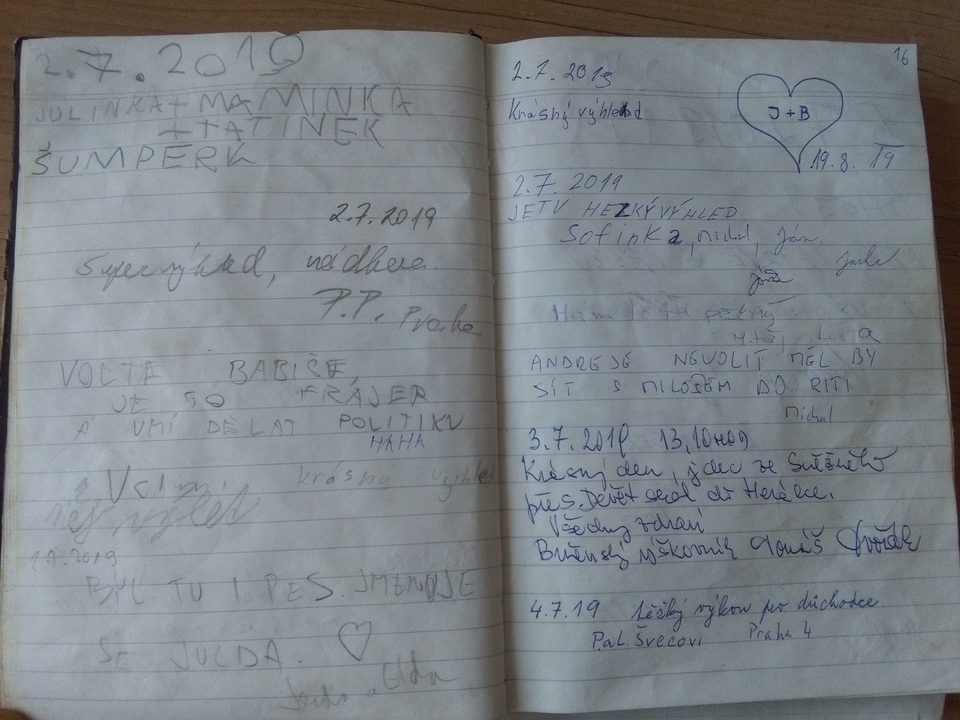 2.7.2019
JULINKA + MAMINKA
+ TATINEK
ŠUMPERK
2.7.2019
nádhera.
P.P. Praha
VOLTE BABIŠE,
JE TO FRAJER
A UMÍ DĚLAT POLITIKU
HAHA
krásný výhled
1.7.2019
BYL TU I PES. JMENUJE
SE JULDA. ♡
16
2.7.2019
Krásný výhled
J + B
19.8. 19
2.7.2019
JETU HEZKÝ VÝHLED
Sofinka, Michal, Ján.
ANDREJE NEVOLIT MĚL BY
JÍT S MILOŠEM DO RITI
Michal
3.7.2019 13,10 hod
Krásný den, jdec ze Sněžného
přes Devět skal do Herálce.
Všechny zdraví
Tomáš Dvořák
4.7.19 Těžký výkon pro důchodce
Pal. Švecovi Praha 4